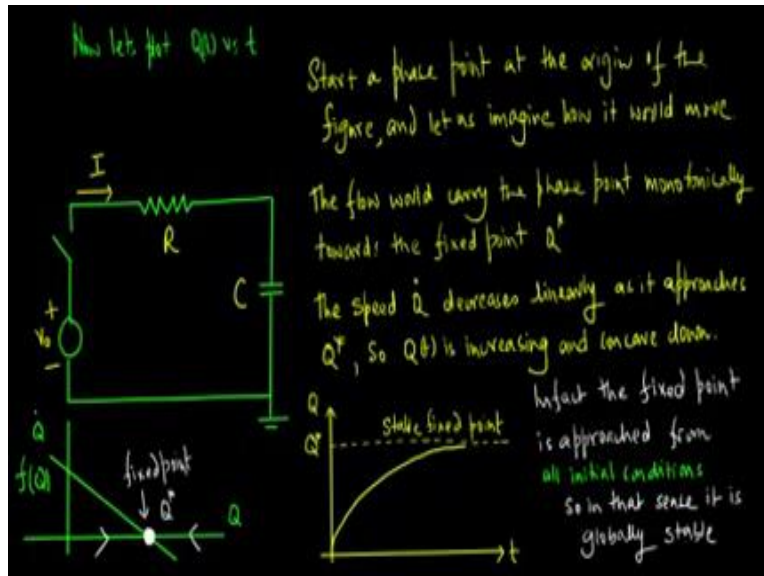 Now lets plot Q(t) vs t
Start a phase point at the origin of the
figure, and let us imagine how it would move
The flow would carry the phase point monotonically
towards the fixed point Q*
The speed Q̇ decreases linearly as it approaches
Q*, So Q(t) is increasing and concave down.
I
R
C
+
V₀
−
Q̇
f(Q)
fixed point
Q*
Q
Q
Q*
stable fixed point
t
Infact the fixed point
is approached from
all initial conditions
So in that sense it is
globally stable